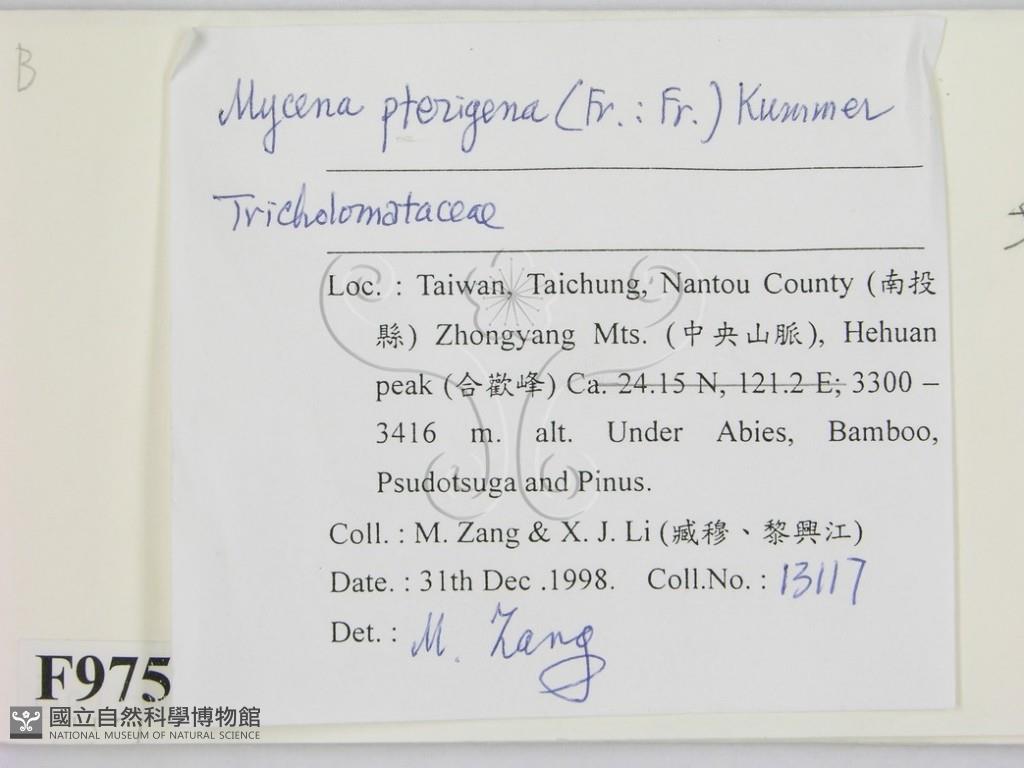 B
Mycena pterigena (Fr. : Fr.) Kummer
Tricholomataceae
Loc. : Taiwan, Taichung, Nantou County (南投
縣) Zhongyang Mts. (中央山脈), Hehuan
peak (合歡峰) Ca. 24.15 N, 121.2 E; 3300 –
3416 m. alt. Under Abies, Bamboo,
Psudotsuga and Pinus.
Coll. : M. Zang & X. J. Li (臧穆、黎興江)
Date. : 31th Dec .1998. Coll.No. : 13117
Det. : M. Zang
F975
國立自然科學博物館
NATIONAL MUSEUM OF NATURAL SCIENCE